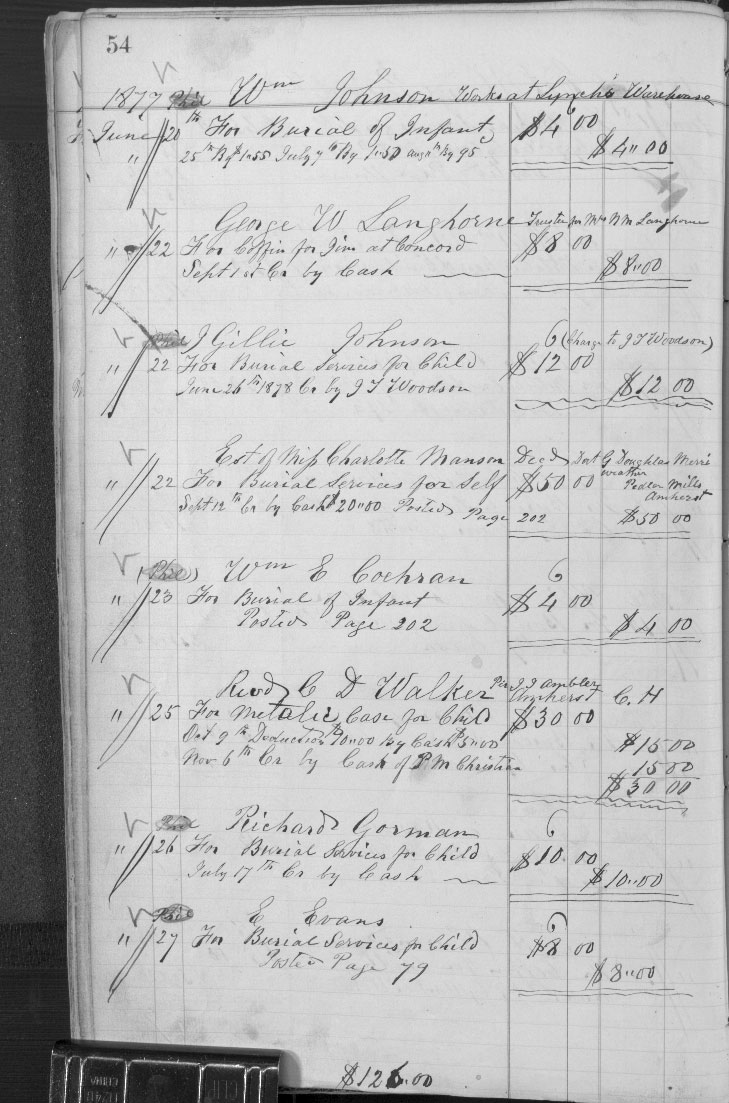 54
1877 Phil Wm Johnson Works at Lynch's Warehouse
June 20th For Burial of Infant $4 00
" 25th By $1.55 July 7th By 1.50 Augth By 95 $4"00
George W Langhorne Trustee for Mrs N M Langhorne
" 22 For Coffin for Jim at Concord $8 00
Sept 1st Cr by Cash $8"00
Phil J Gillie Johnson 6 (Charge to J T Woodson)
" 22 For Burial Services for Child $12 00
June 26th 1878 Cr by J T Woodson $12 00
Est of Miss Charlotte Manson Decd Doct G Douglas Merri
weather
" 22 For Burial Services for Self $50 00 Pedlar Mills
Amherst
Sept 12th Cr by Cash $20"00 Posted Page 202 $50 00
(Phil) Wm E Cochran 6
" 23 For Burial of Infant $4 00
Posted Page 202 $4 00
Revd C D Walker Per J J Ambler
Amherst C. H
" 25 For Metalic Case for Child $30 00
Oct 9th Deduction $10"00 By Cash $5"00 $15 00
Nov 6th Cr by Cash of P M Christian 15 00
$30 00
Phil Richard Gorman 6
" 26 For Burial Services for Child $10 00
July 17th Cr by Cash $10"00
Phil E Evans 6
" 27 For Burial Services for Child $8 00
Posted Page 79 $8"00
$126.00